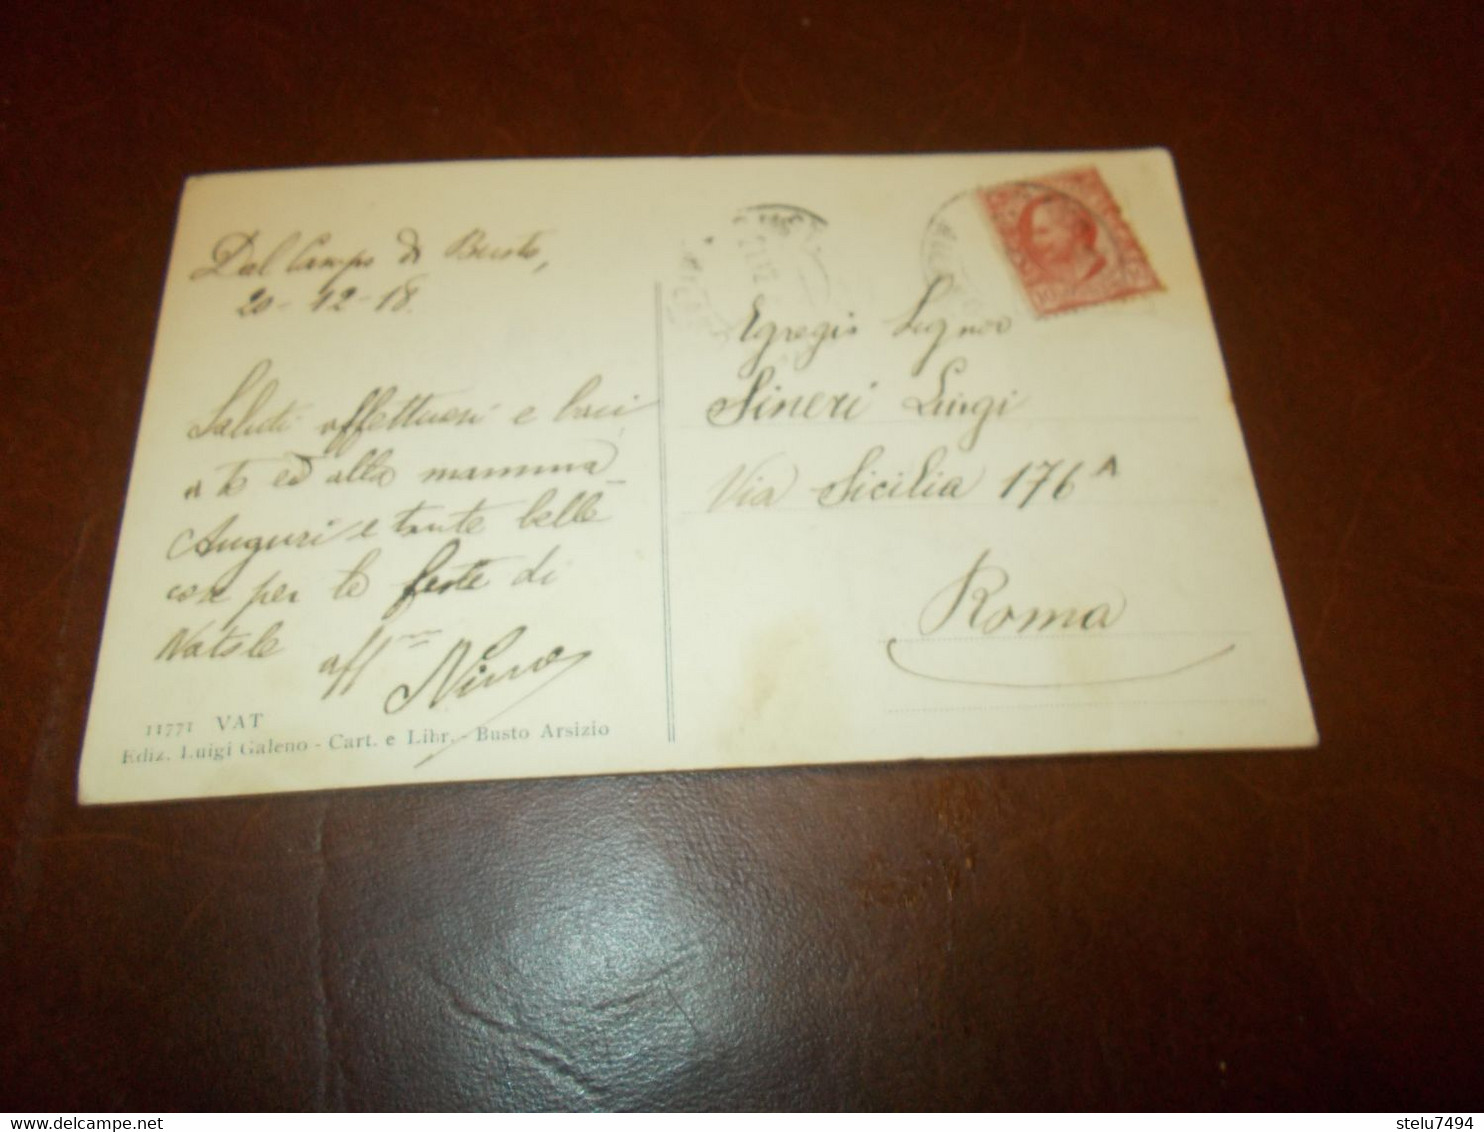 Dal Campo di Busto,
20-12-18.
Saluti affettuosi e baci
a te ed alla mamma
Auguri e tante belle
cose per le feste di
Natale
aff.mo Nino
11771 VAT
Ediz. Luigi Galeno - Cart. e Libr. - Busto Arsizio
Egregio Signor
Sineri Luigi
Via Sicilia 176 A
Roma
delcampe.net
stelu7494